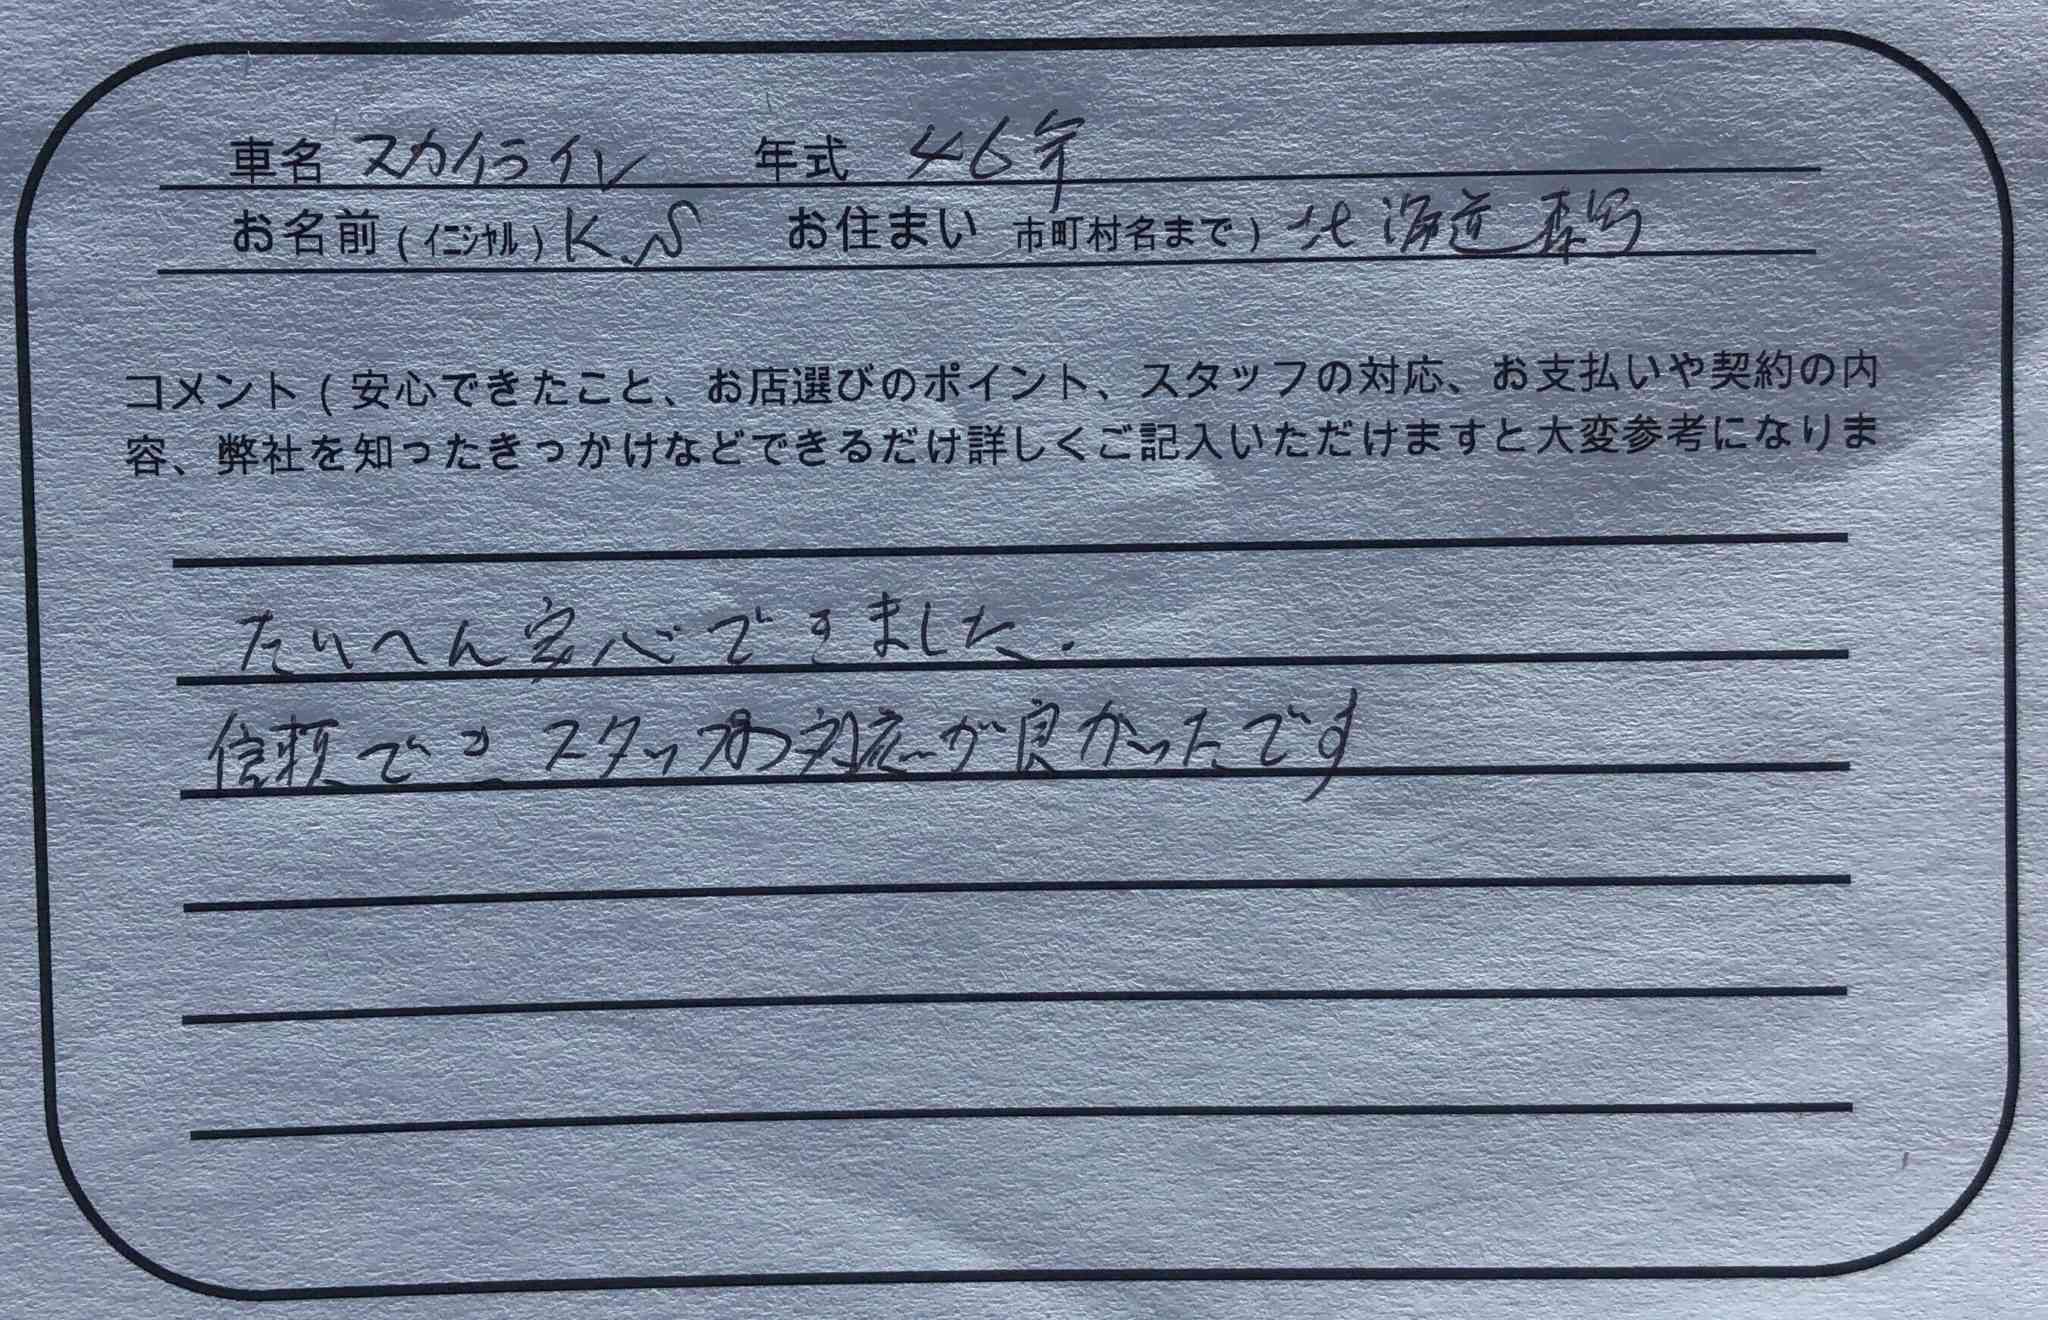 車名 スカイライン 年式 46年
お名前(イニシャル) K.S お住まい 市町村名まで) 北海道
コメント(安心できたこと、お店選びのポイント、スタッフの対応、お支払いや契約の内
容、弊社を知ったきっかけなどできるだけ詳しくご記入いただけますと大変参考になりま
たいへん安心できました.
信頼でき スタッフの対応が良かったです